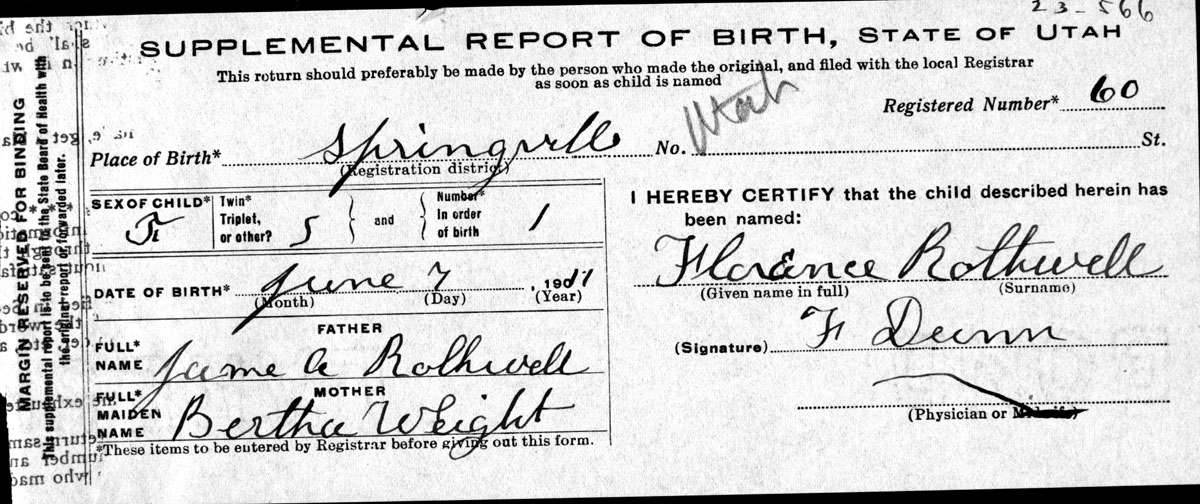 23-566
SUPPLEMENTAL REPORT OF BIRTH, STATE OF UTAH
This return should preferably be made by the person who made the original, and filed with the local Registrar
as soon as child is named
Registered Number* 60
Utah
Place of Birth* Springville No. St.
(Registration district)
SEX OF CHILD* F
Twin* Triplet, or other? S and Number* In order of birth 1
DATE OF BIRTH* June 7, 190
(Month) (Day) (Year)
FATHER
FULL* NAME Jame A Rothwell
MOTHER
FULL* MAIDEN NAME Bertha Weight
*These items to be entered by Registrar before giving out this form.
I HEREBY CERTIFY that the child described herein has
been named:
Florence Rothwell
(Given name in full) (Surname)
(Signature) F Dunn
(Physician or Midwife)
MARGIN RESERVED FOR BINDING
This supplemental report is to be sent to the State Board of Health with
the original report or forwarded later.